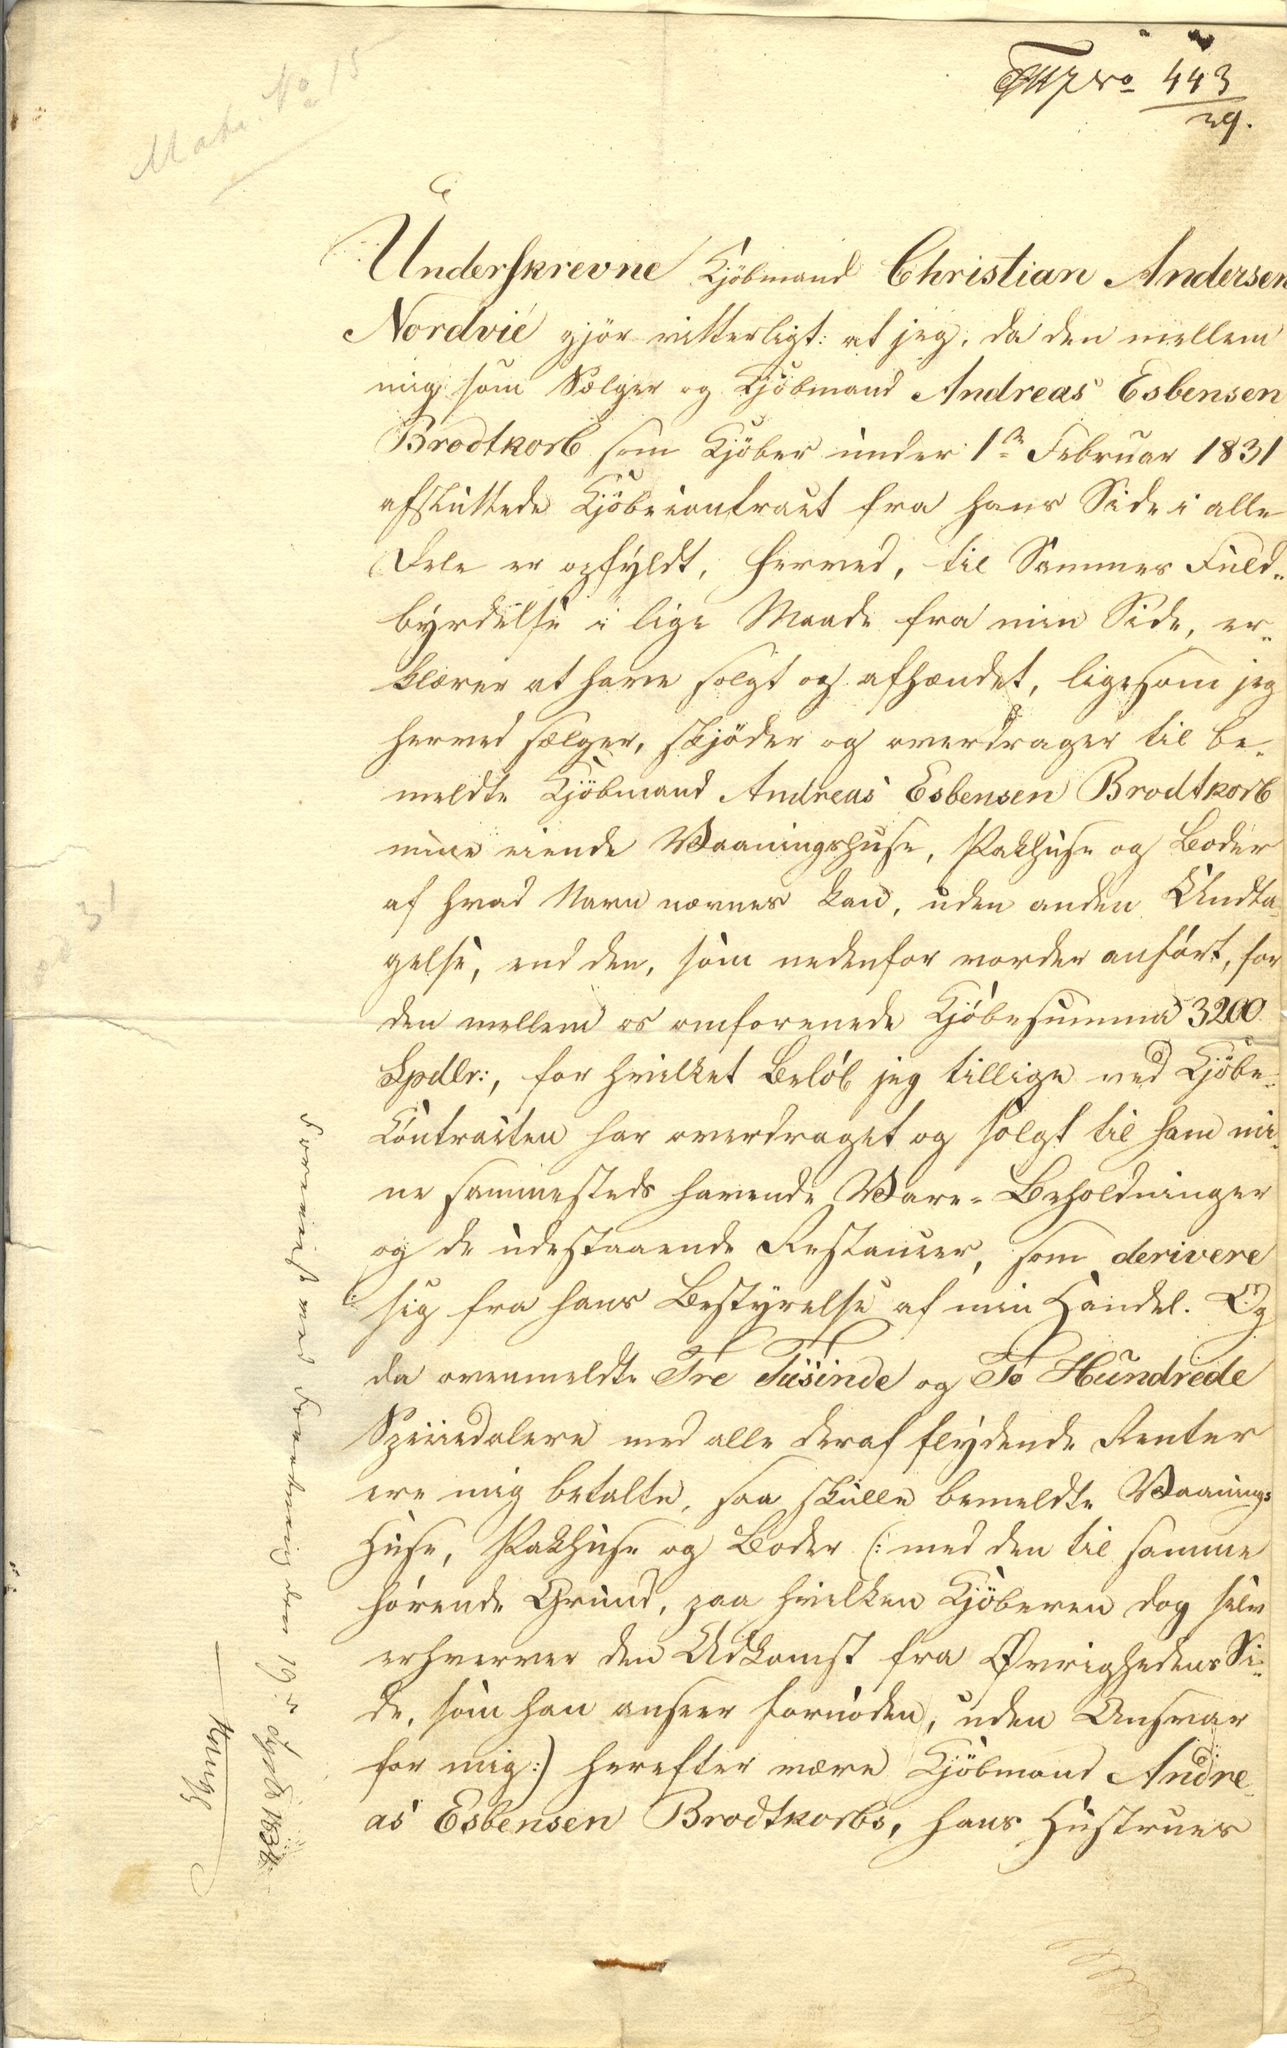 Matr. No 15
No 443
29.
Underskrevne Kjöbmand Christian Andersen
Nordvie gjör vitterligt: at jeg, da den mellem
mig som Sælger og Kjöbmand Andreas Esbensen
Brodtkorb som Kjöber under 1ste Februar 1831
afsluttede Kjöbecontract fra hans Side i alle
Dele er opfyldt, herved, til Sammes Fuld-
byrdelse i lige Maade fra min Side, er-
klærer at have solgt og afhændet, ligesom jeg
herved sælger, skjöder og overdrager til be-
meldte Kjöbmand Andreas Esbensen Brodtkorb
mine eiende Vaaningshuse, Pakhuse og Boder
af hvad Navn nævnes kan, uden anden Undta-
gelse, end den, som nedenfor vorder anfört, for
den mellem os omforenede Kjöbesumma 3200
Spdlr:, for hvilket Belöb jeg tillige ved Kjöbe-
Contracten har overdraget og solgt til ham mi-
ne sammesteds havende Vare-Beholdninger
og de udestaaende Restancer, som derivere
sig fra hans Bestyrelse af min Handel. Og
da ovenmeldte Tre Tusinde og To Hundrede
Speciedalere med alle deraf flydende Renter
ere mig betalte, saa skulle bemeldte Vaanings-
Huse, Pakhuse og Boder (: med den til samme
hörende Grund, paa hvilken Kjöberen dog selv
erhverver den Adkomst fra Øvrighedens Si-
de, som han anseer fornöden, uden Ansvar
for mig:) herefter være Kjöbmand Andre
as Esbensen Brodtkorbs, hans Hustrues
Foreviist ved Forretning den 19de Septbr